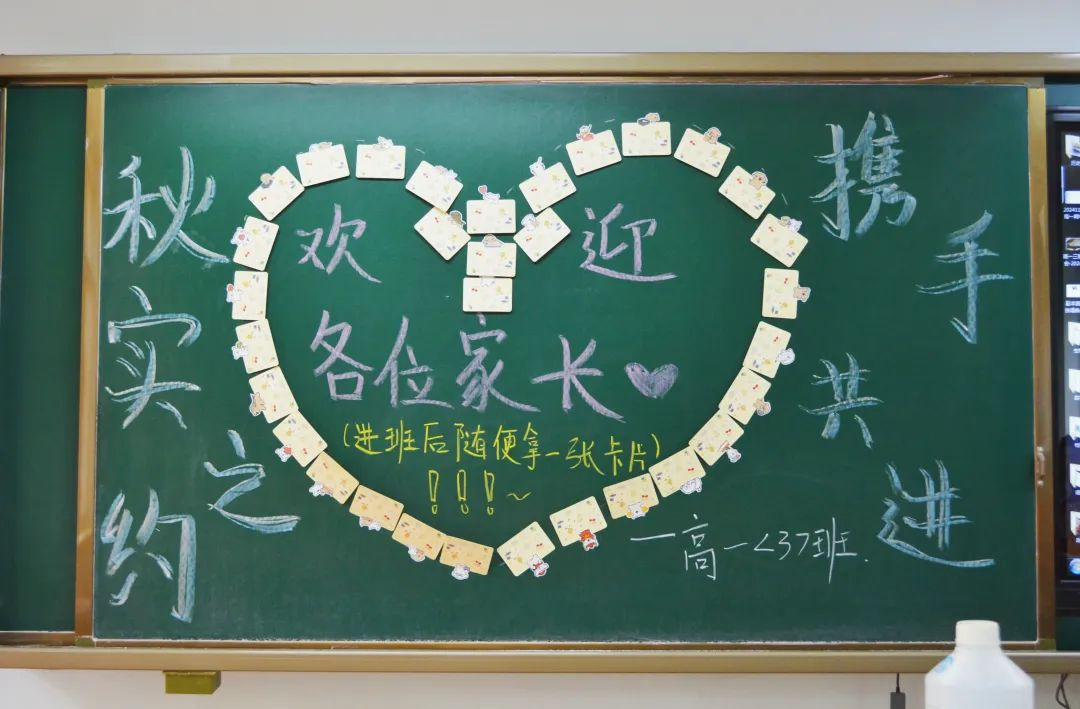 秋实之约
欢迎
各位家长
(进班后随便拿一张卡片)
!!!~
携手共进
一高一<37班.